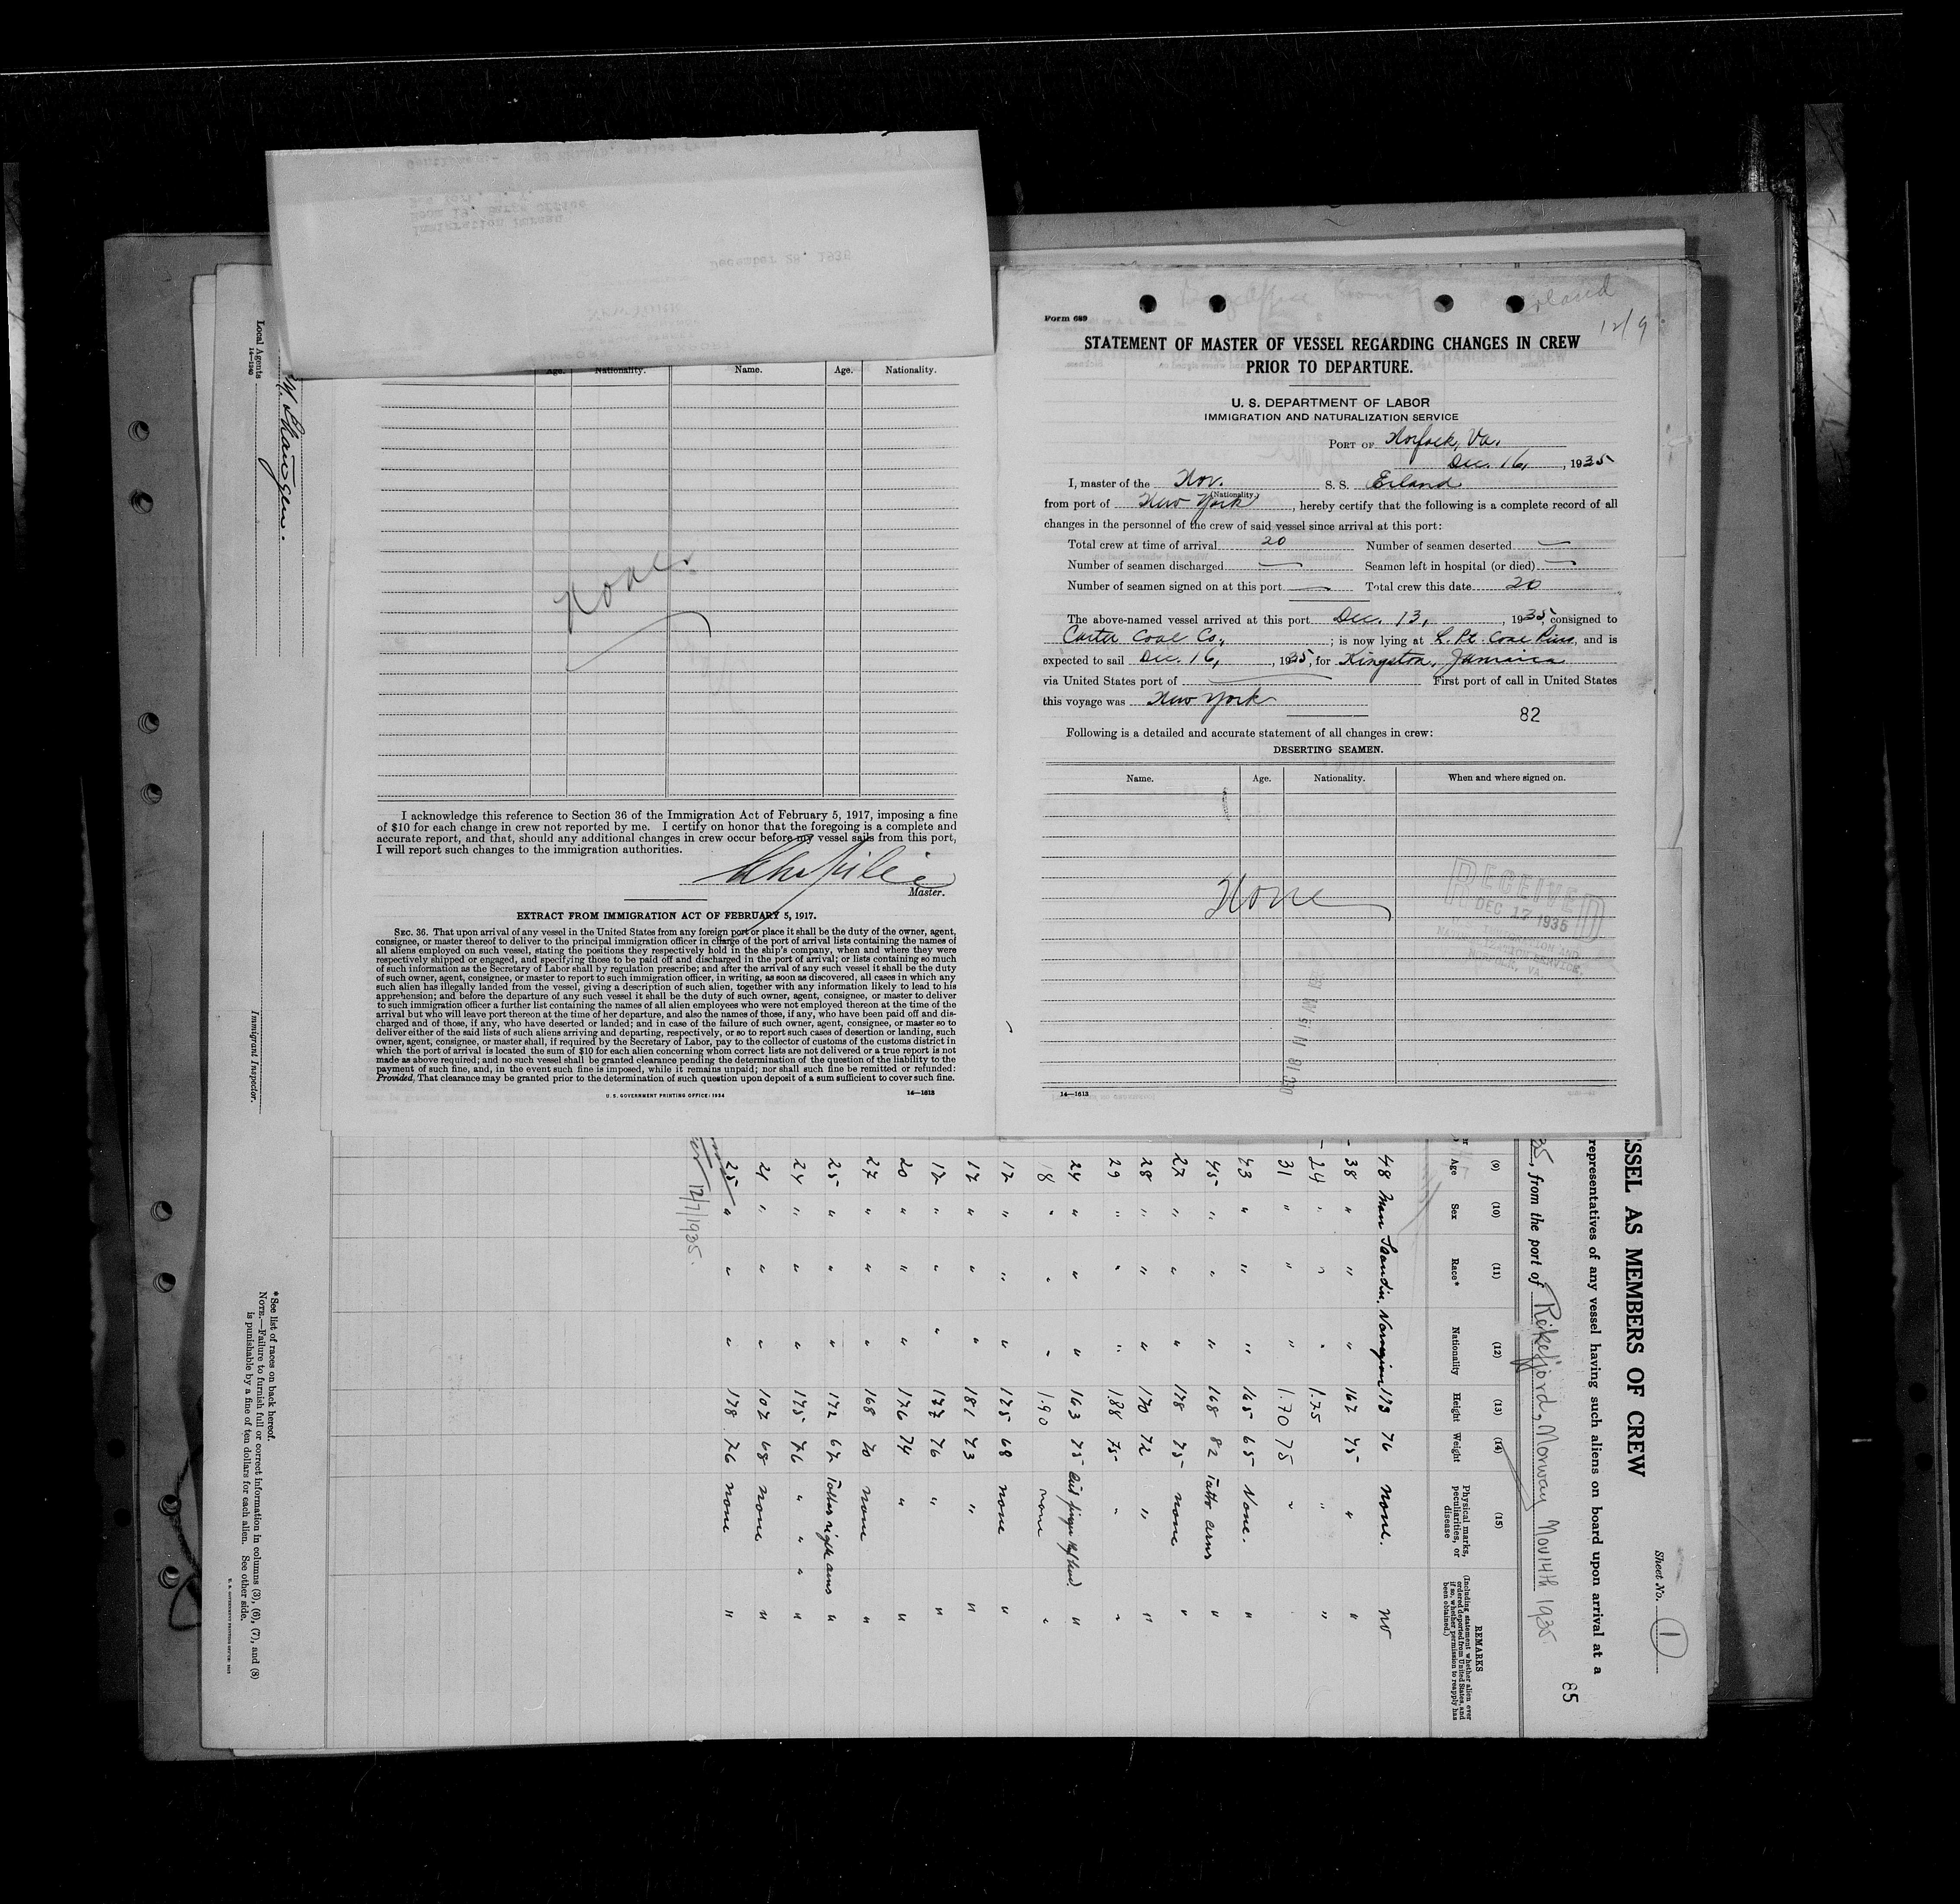 December 28, 1935
Immigration Bureau
Room 19, Barge Office
New York
Gentlemen:-
Age.
Nationality.
Name.
Age.
Nationality.
None
I acknowledge this reference to Section 36 of the Immigration Act of February 5, 1917, imposing a fine
of $10 for each change in crew not reported by me. I certify on honor that the foregoing is a complete and
accurate report, and that, should any additional changes in crew occur before my vessel sails from this port,
I will report such changes to the immigration authorities.
Master.
EXTRACT FROM IMMIGRATION ACT OF FEBRUARY 5, 1917.
SEC. 36. That upon arrival of any vessel in the United States from any foreign port or place it shall be the duty of the owner, agent,
consignee, or master thereof to deliver to the principal immigration officer in charge of the port of arrival lists containing the names of
all aliens employed on such vessel, stating the positions they respectively hold in the ship's company, when and where they were
respectively shipped or engaged, and specifying those to be paid off and discharged in the port of arrival; or lists containing so much
of such information as the Secretary of Labor shall by regulation prescribe; and after the arrival of any such vessel it shall be the duty
of such owner, agent, consignee, or master to report to such immigration officer, in writing, as soon as discovered, all cases in which any
such alien has illegally landed from the vessel, giving a description of such alien, together with any information likely to lead to his
apprehension; and before the departure of any such vessel it shall be the duty of such owner, agent, consignee, or master to deliver
to such immigration officer a further list containing the names of all alien employees who were not employed thereon at the time of the
arrival but who will leave port thereon at the time of her departure, and also the names of those, if any, who have been paid off and dis-
charged and of those, if any, who have deserted or landed; and in case of the failure of such owner, agent, consignee, or master so to
deliver either of the said lists of such aliens arriving and departing, respectively, or so to report such cases of desertion or landing, such
owner, agent, consignee, or master shall, if required by the Secretary of Labor, pay to the collector of customs of the customs district in
which the port of arrival is located the sum of $10 for each alien concerning whom correct lists are not delivered or a true report is not
made as above required; and no such vessel shall be granted clearance pending the determination of the question of the liability to the
payment of such fine, and, in the event such fine is imposed, while it remains unpaid; nor shall such fine be remitted or refunded:
Provided, That clearance may be granted prior to the determination of such question upon deposit of a sum sufficient to cover such fine.
U. S. GOVERNMENT PRINTING OFFICE: 1934
14—1613
Erland
12/9
Form 689
STATEMENT OF MASTER OF VESSEL REGARDING CHANGES IN CREW
PRIOR TO DEPARTURE.
U. S. DEPARTMENT OF LABOR
IMMIGRATION AND NATURALIZATION SERVICE
PORT OF Norfolk, Va.
Dec. 16, , 1935
I, master of the Nor. S. S. Erland
(Nationality)
from port of New York, hereby certify that the following is a complete record of all
changes in the personnel of the crew of said vessel since arrival at this port:
Total crew at time of arrival 20 Number of seamen deserted —
Number of seamen discharged — Seamen left in hospital (or died) —
Number of seamen signed on at this port — Total crew this date 20
The above-named vessel arrived at this port Dec. 13, , 1935, consigned to
Carter Coal Co. ; is now lying at L. Pt. Coal Piers, and is
expected to sail Dec. 16, , 1935, for Kingston, Jamaica
via United States port of — First port of call in United States
this voyage was New York
82
Following is a detailed and accurate statement of all changes in crew:
DESERTING SEAMEN.
Name.
Age.
Nationality.
When and where signed on.
None
RECEIVED
DEC 17 1935
IMMIGRATION AND
NATURALIZATION SERVICE,
NORFOLK, VA
14—1613
Sheet No. 1
SSEL AS MEMBERS OF CREW
representatives of any vessel having such aliens on board upon arrival at a
85
35, from the port of Rekefjord, Norway Nov 14th 1935
(9) (10) (11) (12) (13) (14) (15)
Age Sex Race* Nationality Height Weight Physical marks, peculiarities, or disease
REMARKS
(Including statement whether alien ever ordered deported from United States, and if so, whether permission to reapply has been obtained.)
48 Man Scandin. Norwegian 173 76 None. no
38 " " " 167 75 " "
24 " " " 1.75 " "
31 " " " 1.70 75 "
43 " " " 165 65 None. "
45 " " " 168 82 Tatto arms "
27 " " " 178 75 none "
28 " " " 170 72 " "
29 " " " 1.88 75 " "
24 " " " 163 75 "
18 " " " 1.90 none "
17 " " " 175 68 none "
17 " " " 181 73 " "
17 " " " 177 76 " "
20 " " " 176 74 " "
27 " " " 168 70 none "
25 " " " 172 67 "
24 " " " 175 76 " " " "
21 " " " 107 68 none "
25 " " " 178 76 none "
12/7/1935.
Local Agents
14—1240
Immigrant Inspector.
* See list of races on back hereof.
NOTE.—Failure to furnish full or correct information in columns (3), (6), (7), and (8)
is punishable by a fine of ten dollars for each alien. See other side.